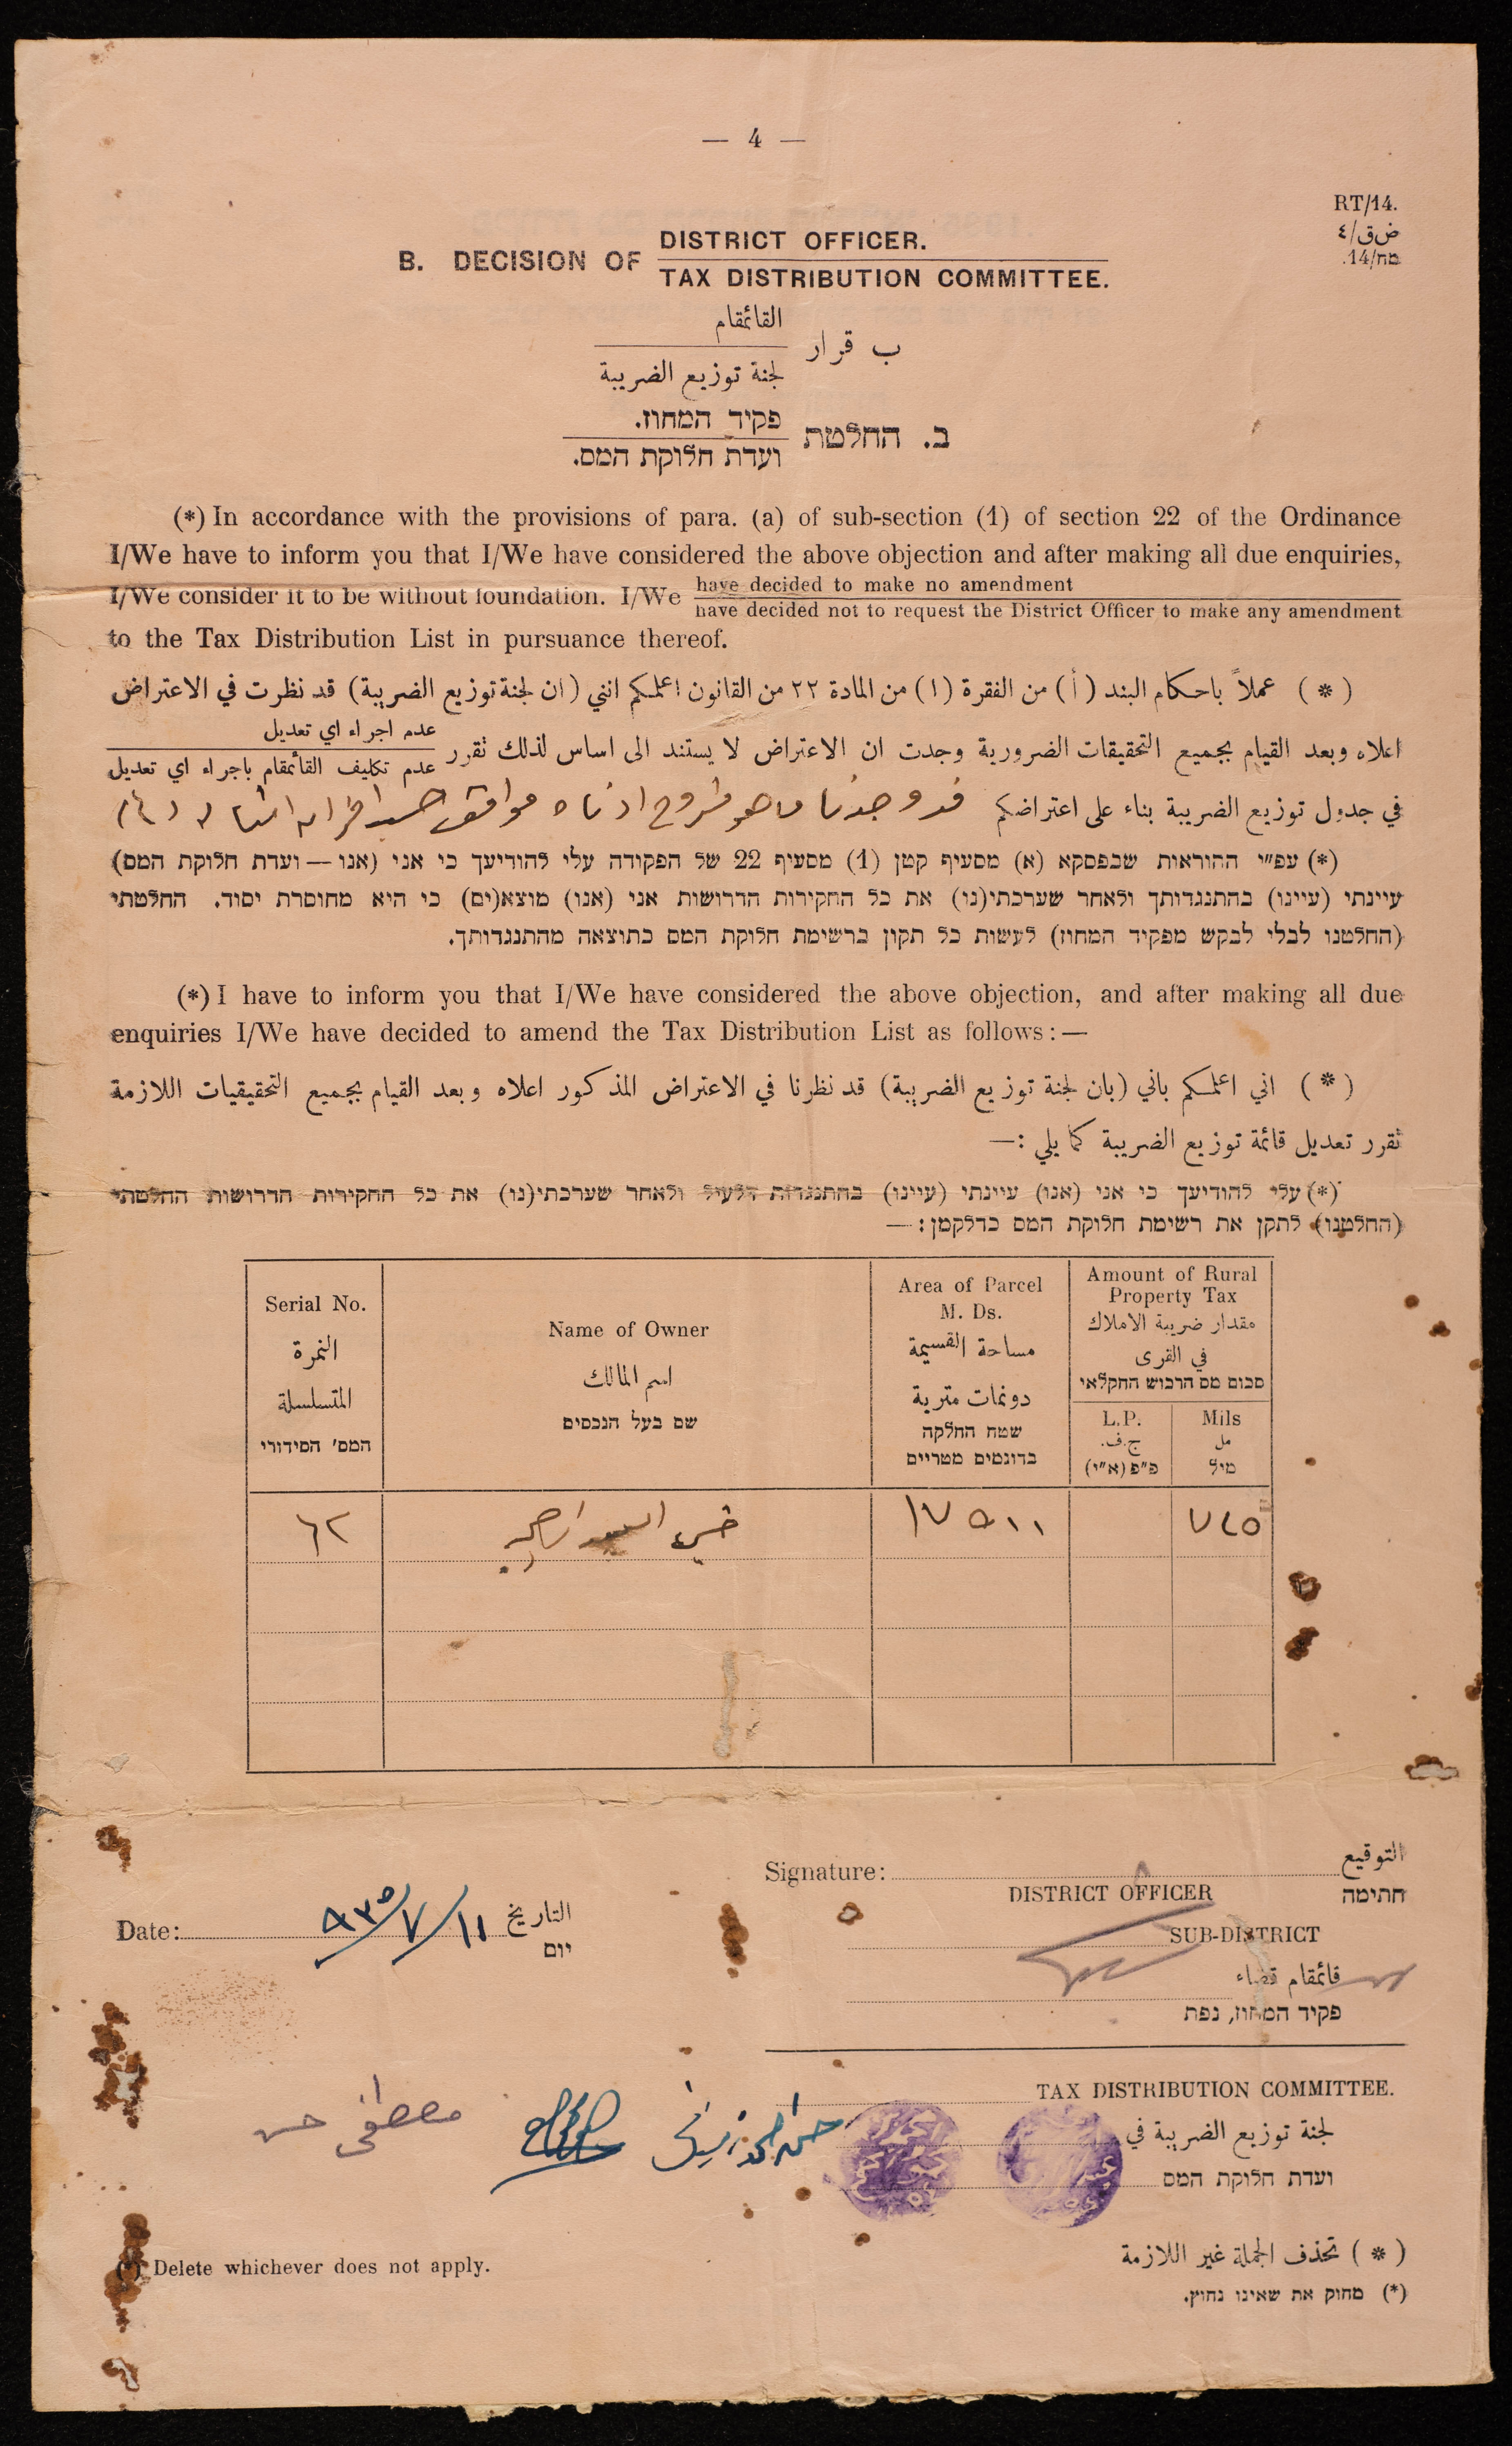 — 4 —
RT/14.
ض‌ق/٤
מח/14.
B. DECISION OF DISTRICT OFFICER.
TAX DISTRIBUTION COMMITTEE.
ب قرار القائمقام
لجنة توزيع الضريبة
ב. החלטת פקיד המחוז.
ועדת חלוקת המס.
(*) In accordance with the provisions of para. (a) of sub-section (1) of section 22 of the Ordinance
I/We have to inform you that I/We have considered the above objection and after making all due enquiries,
I/We consider it to be without foundation. I/We have decided to make no amendment
have decided not to request the District Officer to make any amendment
to the Tax Distribution List in pursuance thereof.
( * ) عملاً باحكام البند (أ) من الفقرة (١) من المادة ٢٢ من القانون اعلمكم انني (ان لجنة توزيع الضريبة) قد نظرت في الاعتراض
اعلاه وبعد القيام بجميع التحقيقات الضرورية وجدت ان الاعتراض لا يستند الى اساس لذلك نقرر عدم اجراء اي تعديل
عدم تكليف القائمقام باجراء اي تعديل
في جدول توزيع الضريبة بناء على اعتراضكم قد وجدنا ما هو مشروح ادناه موافق
(*) עפ״י ההוראות שבפסקא (א) מסעיף קטן (1) מסעיף 22 של הפקודה עלי להודיעך כי אני (אנו — ועדת חלוקת המס)
עיינתי (עיינו) בהתנגדותך ולאחר שערכתי(נו) את כל החקירות הדרושות אני (אנו) מוצא(ים) כי היא מחוסרת יסוד. החלטתי
(החלטנו לבלי לבקש מפקיד המחוז) לעשות כל תקון ברשימת חלוקת המס כתוצאה מהתנגדותך.
(*) I have to inform you that I/We have considered the above objection, and after making all due
enquiries I/We have decided to amend the Tax Distribution List as follows: —
( * ) اني اعلمكم باني (بان لجنة توزيع الضريبة) قد نظرنا في الاعتراض المذكور اعلاه وبعد القيام بجميع التحقيقيات اللازمة
نقرر تعديل قائمة توزيع الضريبة كما يلي :—
(*) עלי להודיעך כי אני (אנו) עיינתי (עיינו) בהתנגדות הלעיל ולאחר שערכתי(נו) את כל החקירות הדרושות החלטתי
(החלטנו) לתקן את רשימת חלוקת המס כדלקמן: —
Serial No.
النمرة
المتسلسلة
המס׳ הסידורי
Name of Owner
اسم المالك
שם בעל הנכסים
Area of Parcel
M. Ds.
مساحة القسيمة
دونمات مترية
שטח החלקה
בדונמים מטריים
Amount of Rural
Property Tax
مقدار ضريبة الاملاك
في القرى
סכום מס הרכוש החקלאי
L.P.
ج.ف.
פ״פ (א״י)
Mils
مل
מיל
٦٢
١٧٥١١
٧٤٥
Signature: التوقيع
חתימה
DISTRICT OFFICER
SUB-DISTRICT
قائمقام قضاء
פקיד המחוז, נפת
Date: ٩٣٥/٧/١١ التاريخ
יום
TAX DISTRIBUTION COMMITTEE.
لجنة توزيع الضريبة في
ועדת חלוקת המס
مصطفى حسن
(*) Delete whichever does not apply.
( * ) تحذف الجملة غير اللازمة
(*) מחוק את שאינו נחוץ.